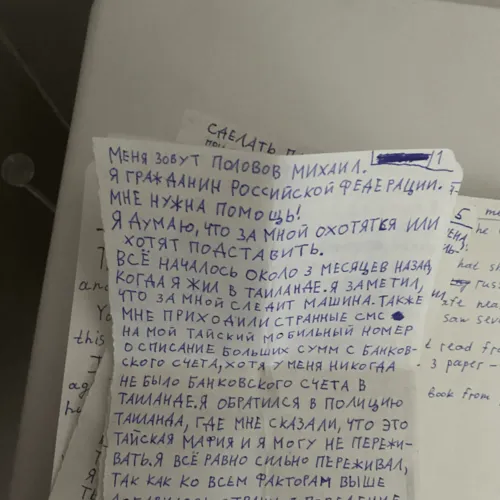 СДЕЛАТЬ
МЕНЯ ЗОВУТ ПОЛОВОВ МИХАИЛ. 1
Я ГРАЖДАНИН РОССИЙСКОЙ ФЕДЕРАЦИИ.
МНЕ НУЖНА ПОМОЩЬ!
Я ДУМАЮ, ЧТО ЗА МНОЙ ОХОТЯТСЯ ИЛИ
ХОТЯТ ПОДСТАВИТЬ.
ВСЁ НАЧАЛОСЬ ОКОЛО 3 МЕСЯЦЕВ НАЗАД,
КОГДА Я ЖИЛ В ТАИЛАНДЕ. Я ЗАМЕТИЛ,
ЧТО ЗА МНОЙ СЛЕДИТ МАШИНА. ТАКЖЕ
МНЕ ПРИХОДИЛИ СТРАННЫЕ СМС
НА МОЙ ТАЙСКИЙ МОБИЛЬНЫЙ НОМЕР
О СПИСАНИЕ БОЛЬШИХ СУММ С БАНКОВ-
СКОГО СЧЕТА, ХОТЯ У МЕНЯ НИКОГДА
НЕ БЫЛО БАНКОВСКОГО СЧЕТА В
ТАИЛАНДЕ. Я ОБРАТИЛСЯ В ПОЛИЦИЮ
ТАИЛАНДА, ГДЕ МНЕ СКАЗАЛИ, ЧТО ЭТО
ТАЙСКАЯ МАФИЯ И Я МОГУ НЕ ПЕРЕЖИ-
ВАТЬ. Я ВСЁ РАВНО СИЛЬНО ПЕРЕЖИВАЛ,
ТАК КАК КО ВСЕМ ФАКТОРАМ ВЫШЕ
5
he
hat
saw
read from
3 paper -
book from
this